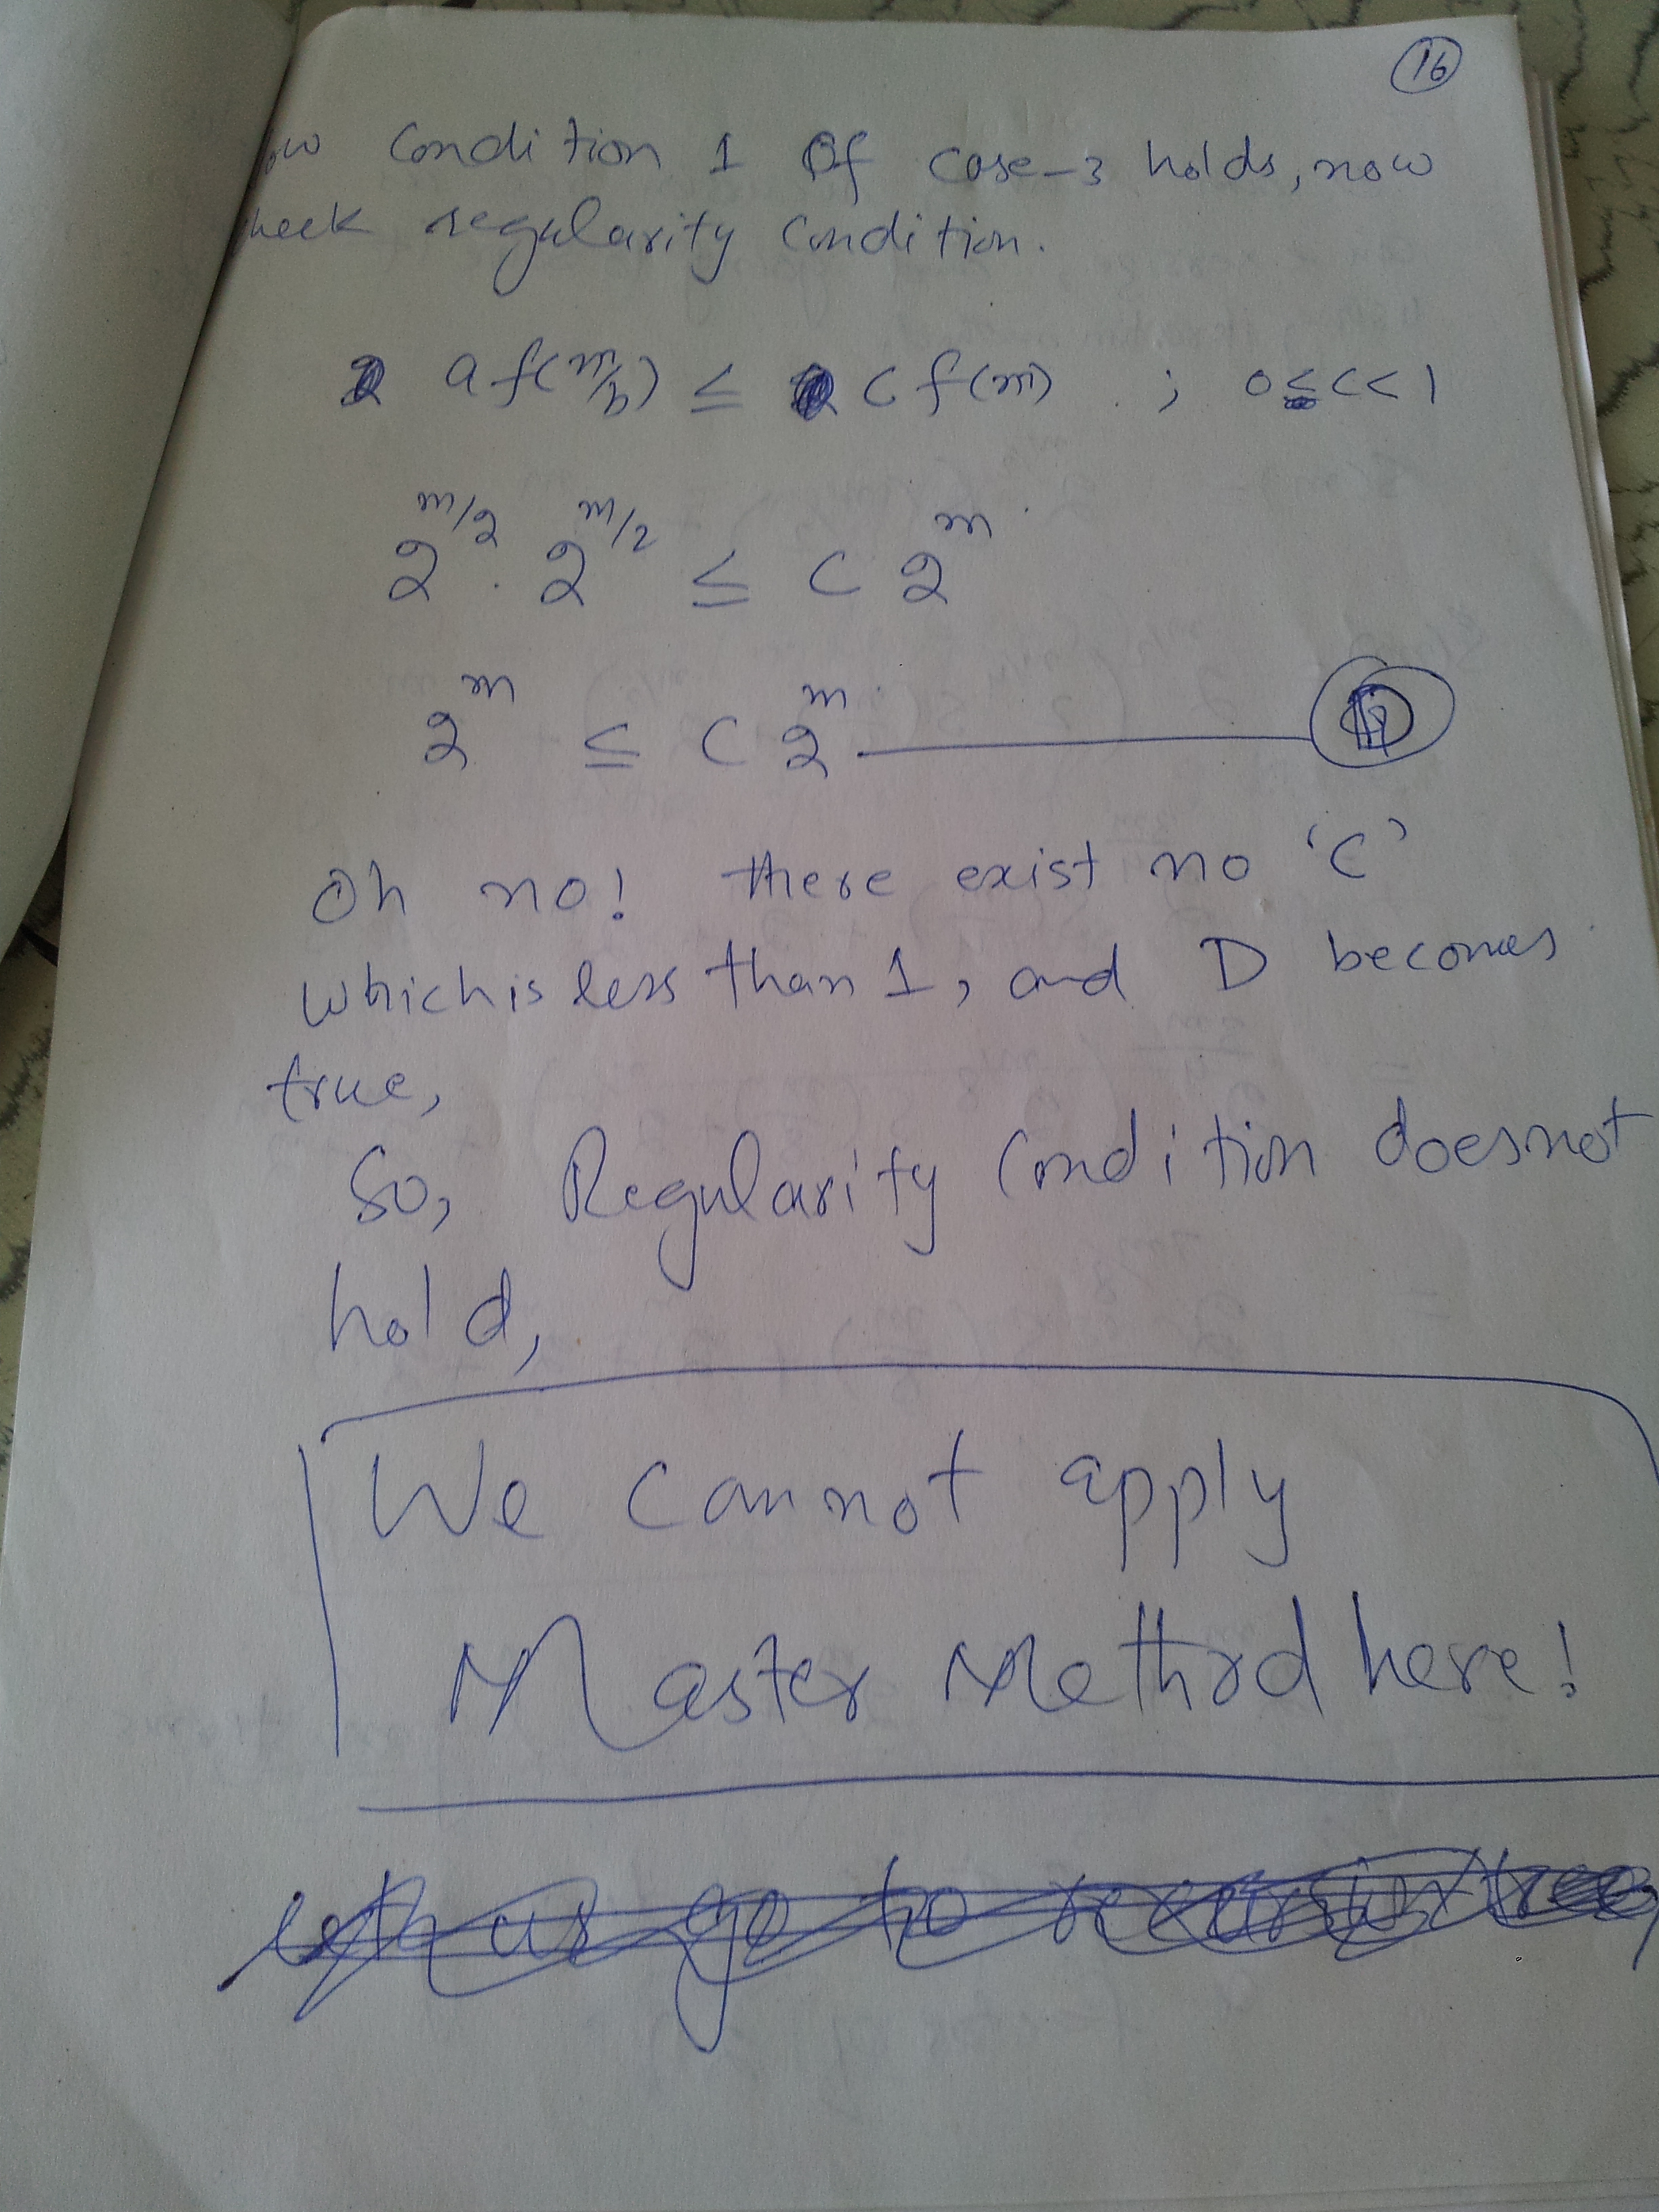 16
Now Condition 1 Of Case-3 holds, now
check regularity condition.
a f(m/b) ≤ c f(m) ; 0≤c<1
2^{m/2} . 2^{m/2} ≤ c 2^m
2^m ≤ c 2^m — D
Oh no! there exist no 'c'
which is less than 1, and D becomes
true,
So, Regularity Condition doesnot
hold,
We cannot apply
Master Method here!